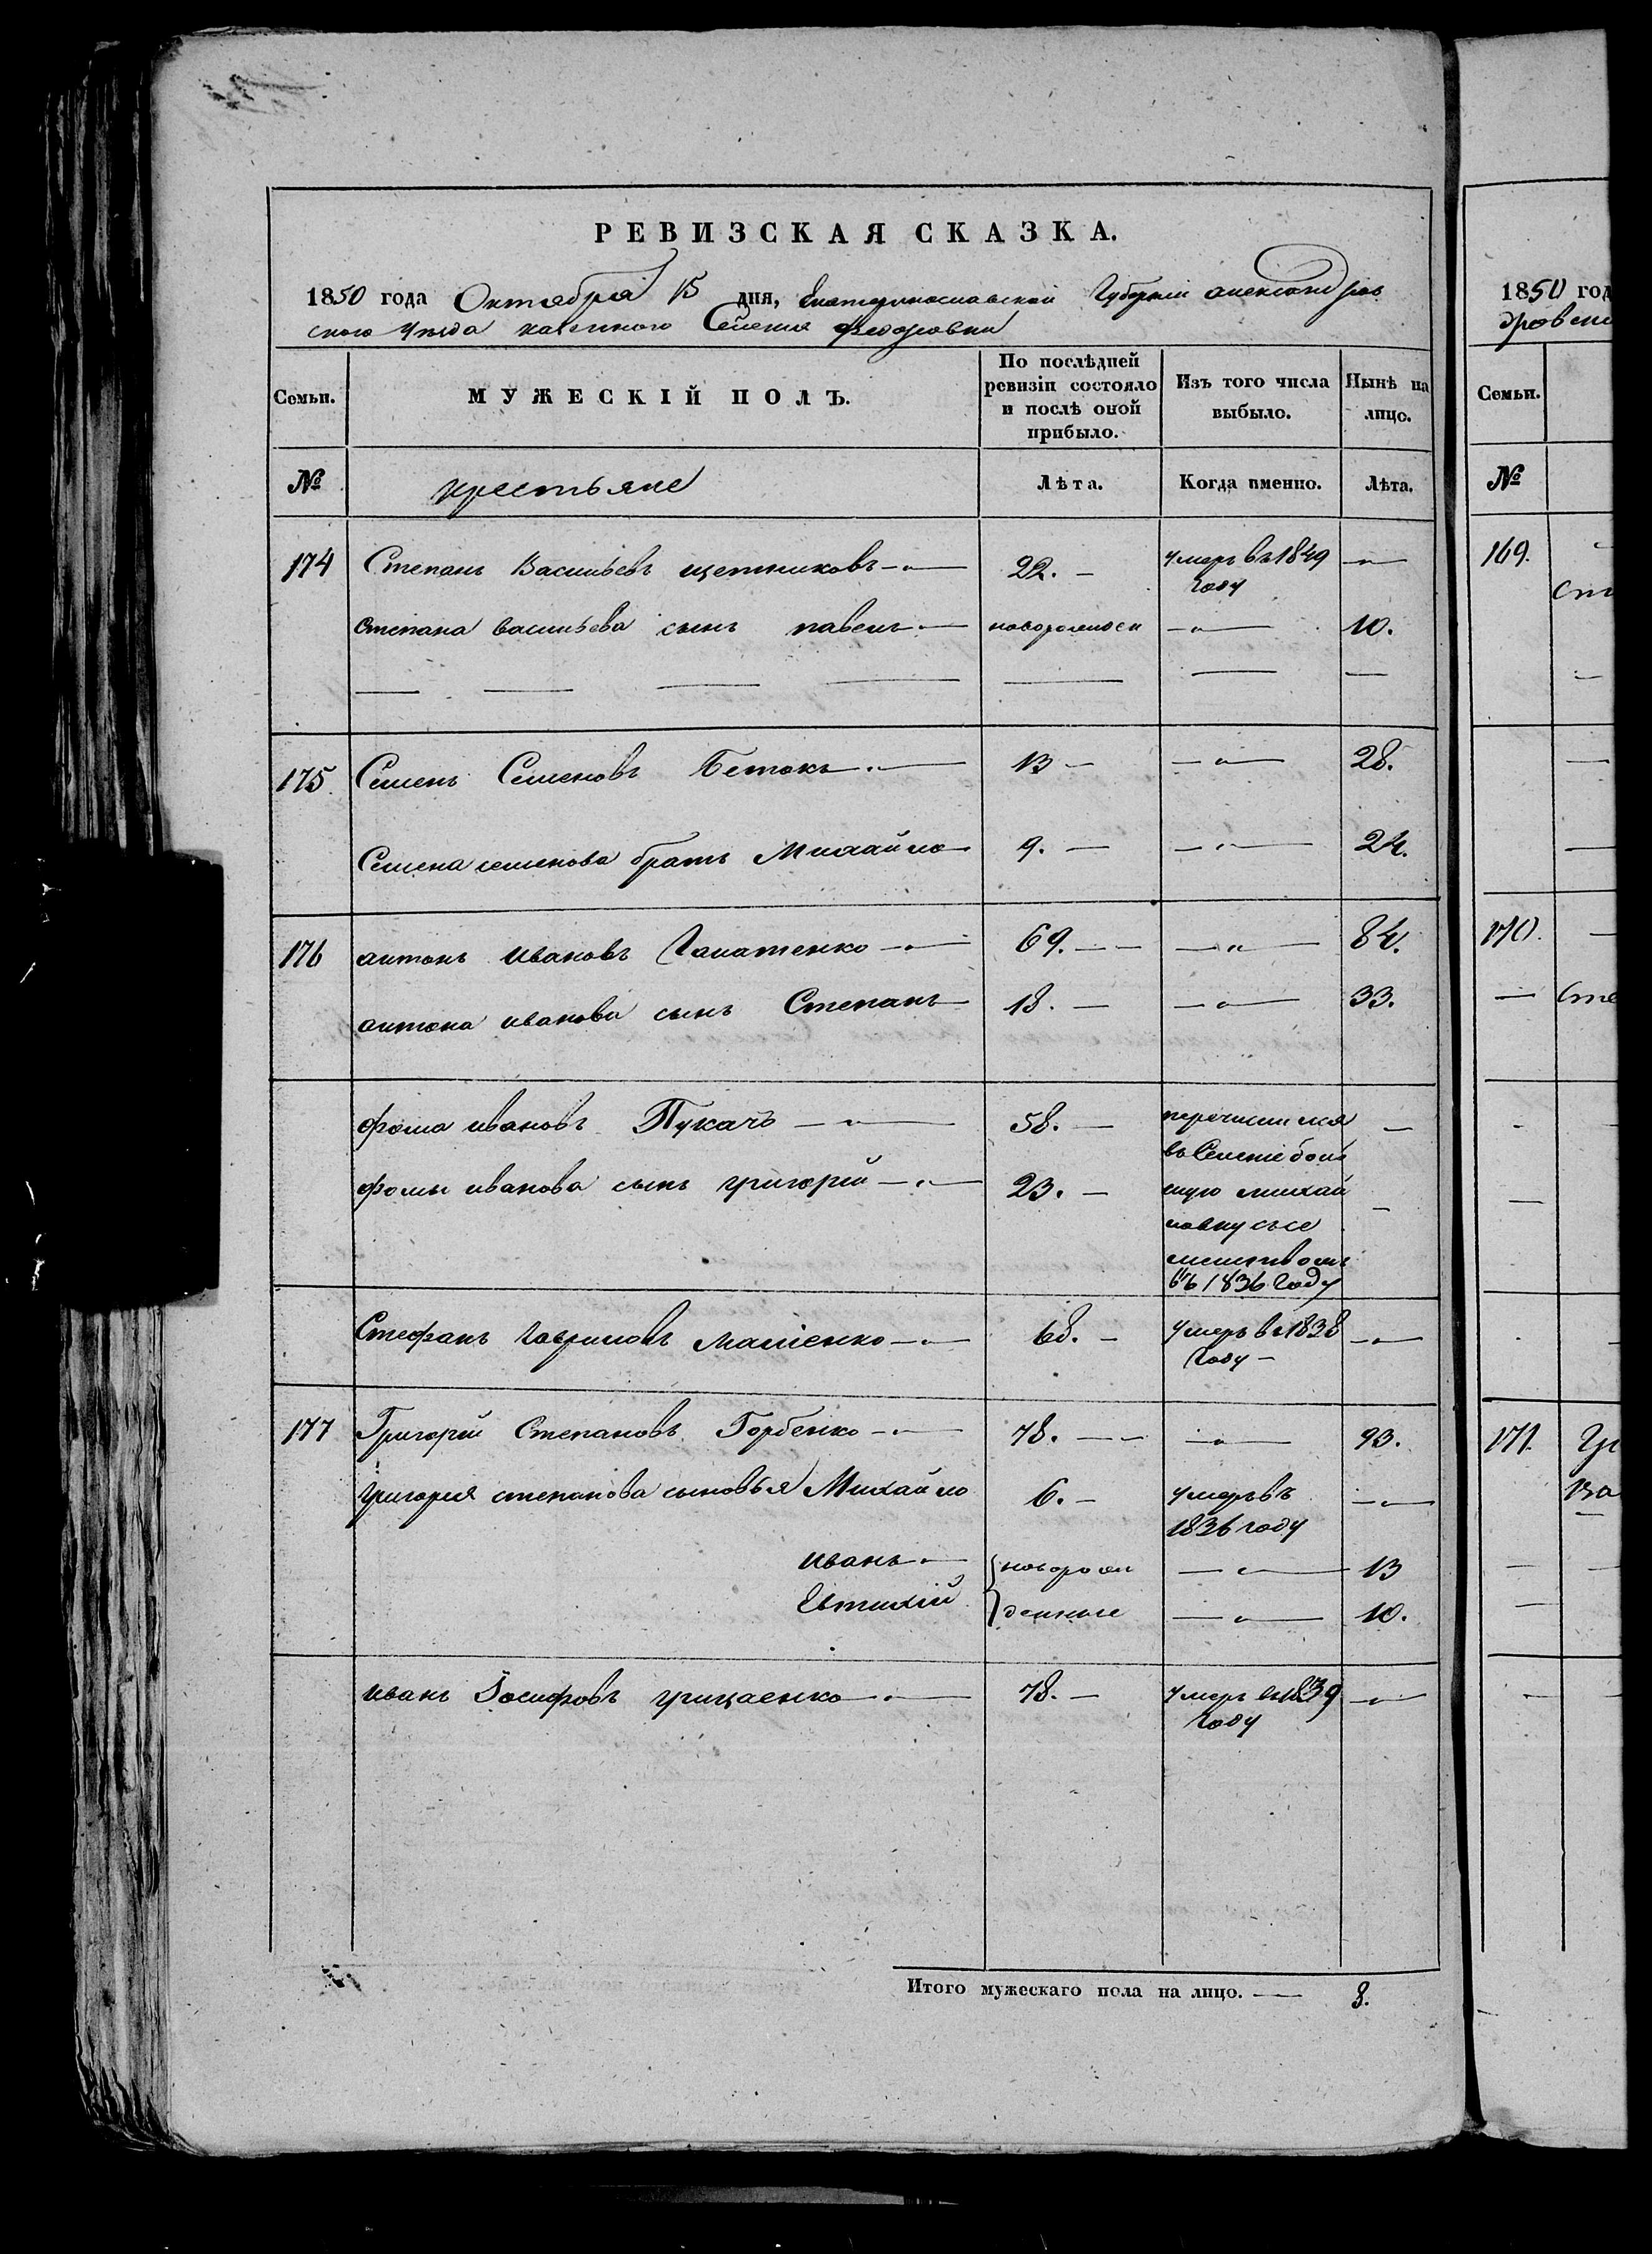 РЕВИЗСКАЯ СКАЗКА.
1850 года Октября 15 дня, Екатеринославской Губерніи александров
ского уѣзда казенного Селенія федоровки
Семьи. МУЖЕСКІЙ ПОЛЪ. По послѣдней ревизіи состояло и послѣ оной прибыло. Изъ того числа выбыло. Нынѣ на лицо.
№ крестьяне Лѣта. Когда именно. Лѣта.
174 Степанъ Васильевъ щетниковъ 22. умеръ въ 1849 году
степана васильева сынъ павелъ новорожден 10.
175. Семенъ Семеновъ Бетокъ 13 28.
Семена семенова братъ Михайло 9. 24.
176 антонъ ивановъ Галатенко 69. 84.
антона иванова сынъ Степанъ 18. 33.
фома ивановъ Пукачъ 58. перечислился
въ Селеніе боль
фомы иванова сынъ григорій 23. шую михай
ловку съ се
мействомъ
въ 1836 году
Стефанъ гавриловъ 68. умеръ в 1838 году
177 Григорій Степановъ Горбенко 78. 93.
григорія степанова сыновья Михайло 6. умеръ въ
1836 году
иванъ новорож 13
Евтихій денные 10.
иванъ Іосифовъ грицаенко 78. умеръ въ 1839 году
Итого мужескаго пола на лицо. 8.
1850 год
дровск
Семьи.
№
169.
170.
Сте
171.